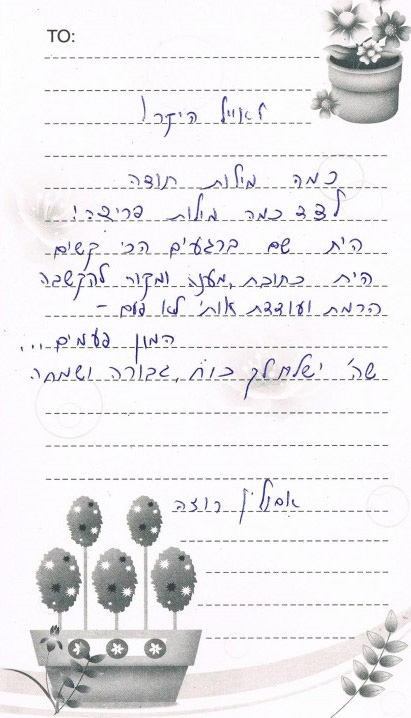 TO:
לאוייל היקר!
כמה מילות תודה
לצד כמה מילות פרידה!
היית שם ברגעים הכי קשים
היית כתובת, מענה ומקור להקשבה
הרמת ועודדת אותי לא פעם -
המון פעמים...
שה' ישלח לך כוח, גבורה ושמחה.
רוצה